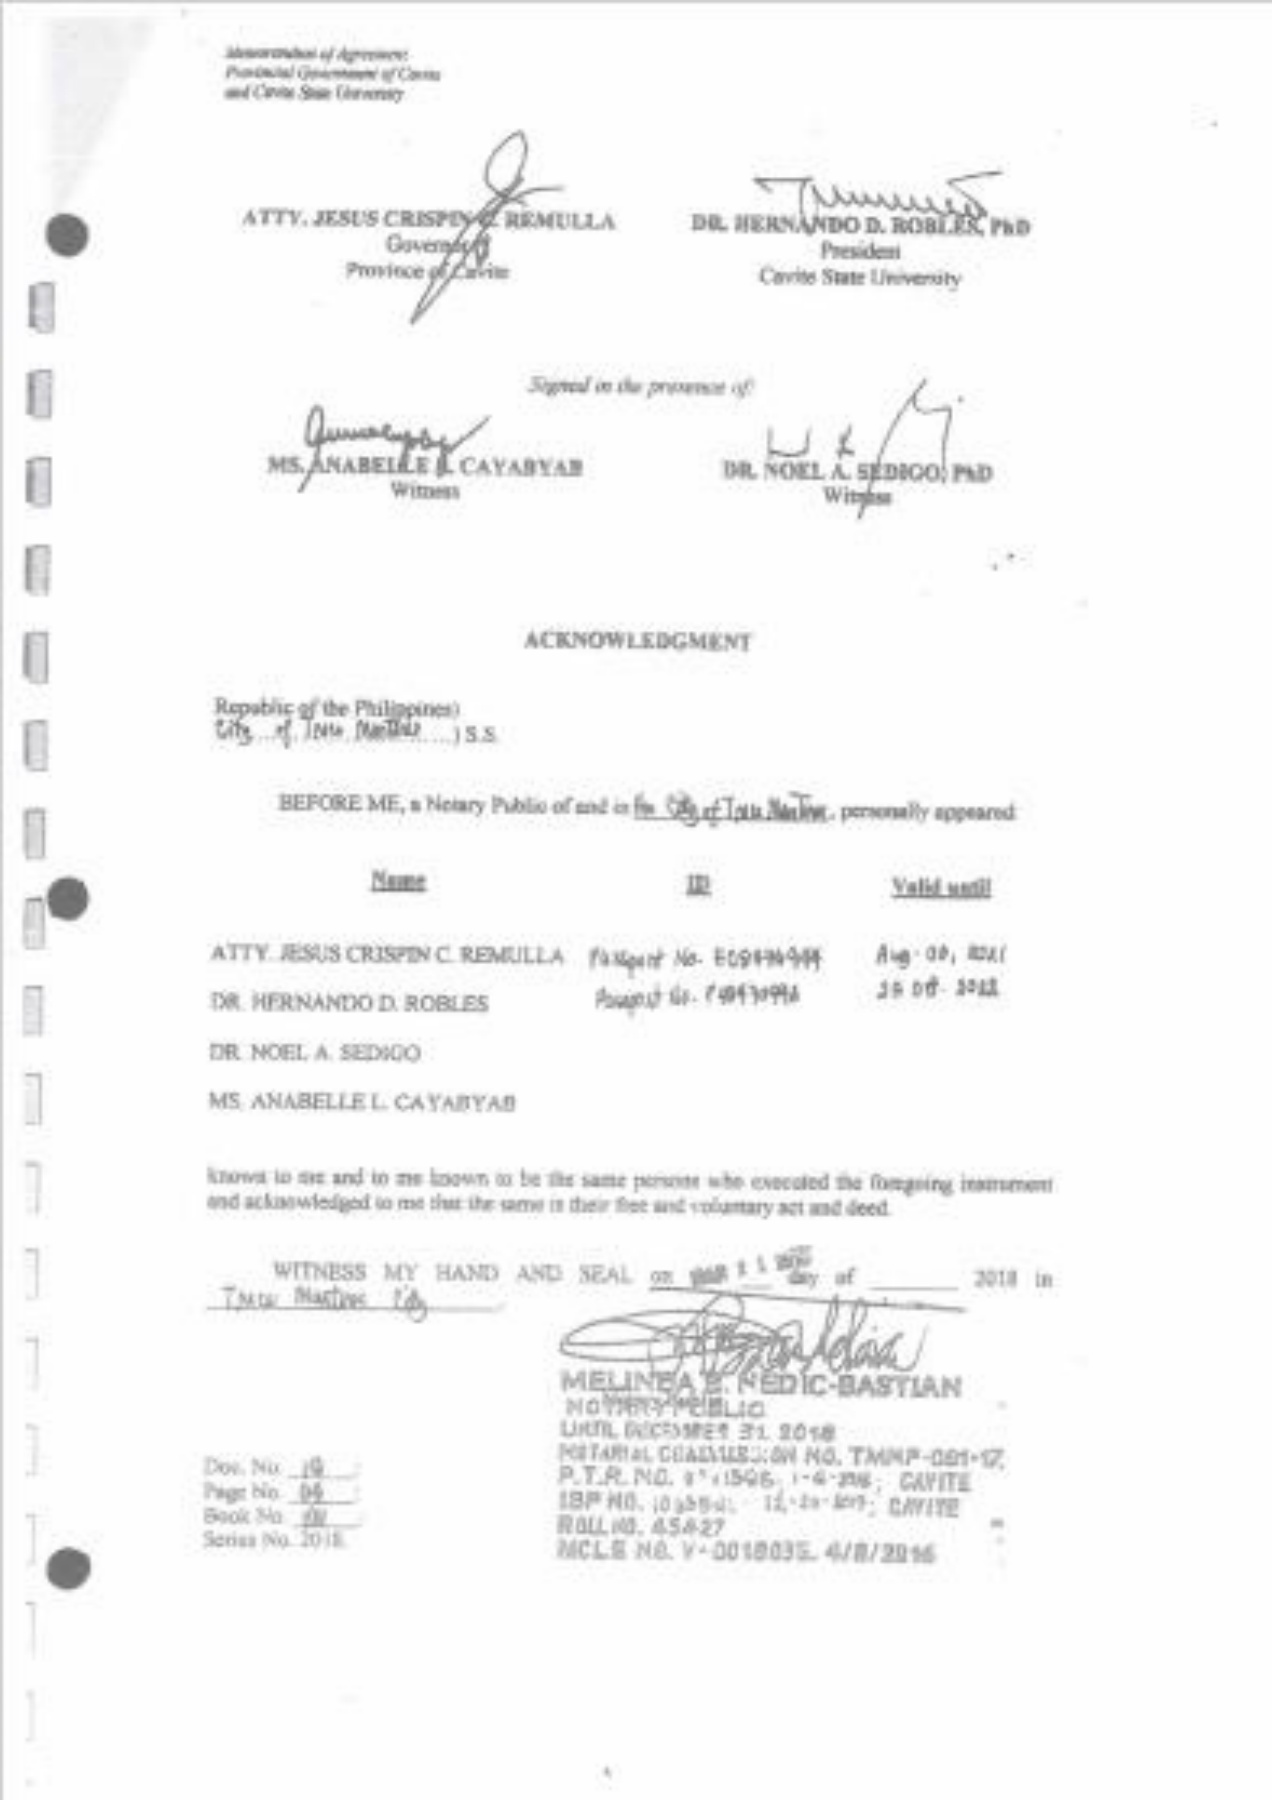 Memorandum of Agreement
Provincial Government of Cavite
and Cavite State University
ATTY. JESUS CRISPIN C. REMULLA
Governor
Province of Cavite
DR. HERNANDO D. ROBLES, PhD
President
Cavite State University
Signed in the presence of:
MS. ANABELLE L. CAYABYAB
Witness
DR. NOEL A. SEDIGO, PhD
Witness
ACKNOWLEDGMENT
Republic of the Philippines)
City of Trece Martires ) S.S.
BEFORE ME, a Notary Public of and in the City of Trece Martires, personally appeared
Name ID Valid until
ATTY. JESUS CRISPIN C. REMULLA Passport No. Aug.
DR. HERNANDO D. ROBLES Passport No.
DR. NOEL A. SEDIGO
MS. ANABELLE L. CAYABYAB
known to me and to me known to be the same persons who executed the foregoing instrument
and acknowledged to me that the same is their free and voluntary act and deed.
WITNESS MY HAND AND SEAL on day of 2018 in
Trece Martires City
NEDIC-BASTIAN
NOTARY PUBLIC
UNTIL DECEMBER 31, 2018
NOTARIAL COMMISSION NO. TMNP-001-17
P.T.R. NO. CAVITE
IBP NO. CAVITE
ROLL NO. 45427
MCLE NO. V-0018035, 4/8/2016
Doc. No.
Page No.
Book No.
Series No. 2018.